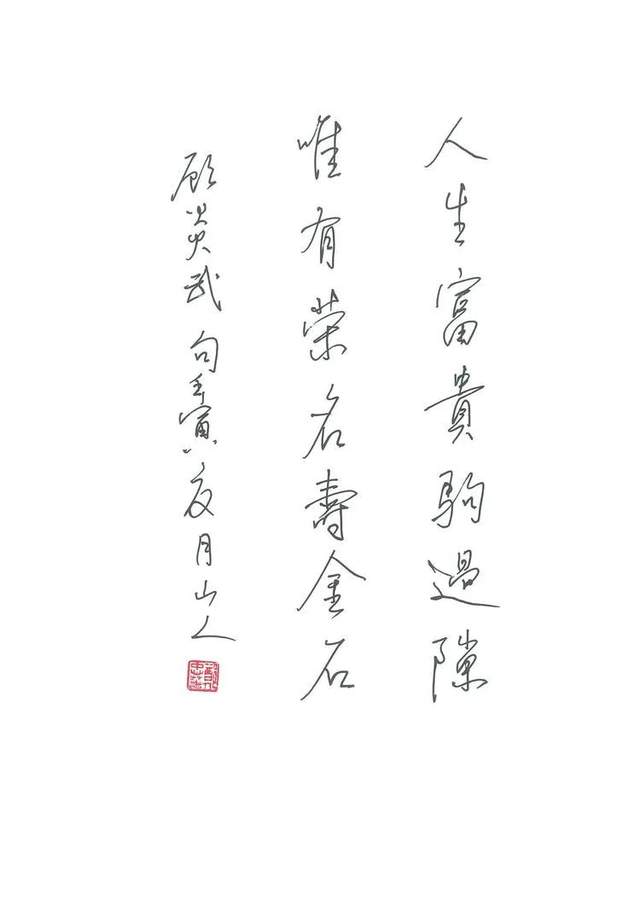 人生富貴駒過隙
唯有荣名壽金石
顾炎武句壬寅夏月山人